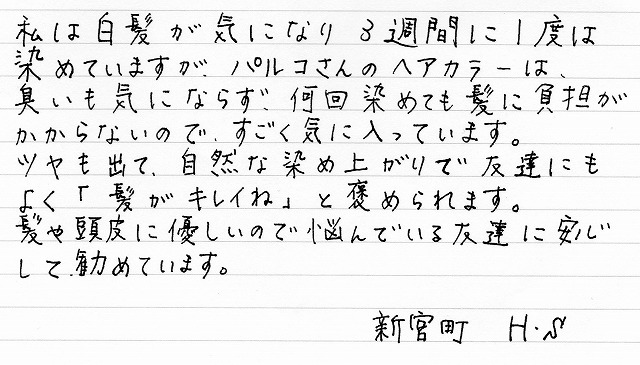 私は白髪が気になり3週間に1度は
染めていますが、パルコさんのヘアカラーは、
臭いも気にならず、何回染めても髪に負担が
かからないので、すごく気に入っています。
ツヤも出て、自然な染め上がりで友達にも
よく「髪がキレイね」と褒められます。
髪や頭皮に優しいので悩んでいる友達に安心
して、勧めています。
新宮町 H.S